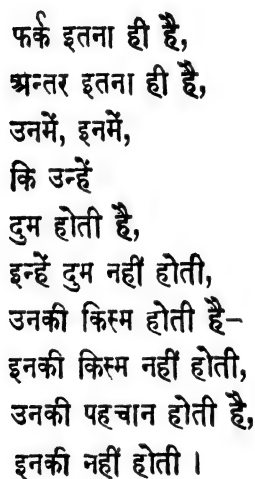 फर्क इतना ही है,
अन्तर इतना ही है,
उनमें, इनमें,
कि उन्हें
दुम होती है,
इन्हें दुम नहीं होती,
उनकी किस्म होती है–
इनकी किस्म नहीं होती,
उनकी पहचान होती है,
इनकी नहीं होती ।